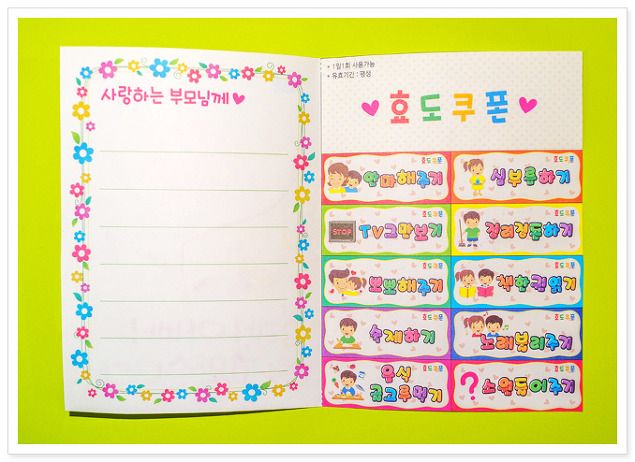 사랑하는 부모님께
* 1일1회 사용가능
* 유효기간 : 평생
효도쿠폰
효도쿠폰
안마해주기
효도쿠폰
심부름하기
효도쿠폰
STOP
TV그만보기
효도쿠폰
정리정돈하기
효도쿠폰
뽀뽀해주기
효도쿠폰
책한권읽기
효도쿠폰
숙제하기
효도쿠폰
노래불러주기
효도쿠폰
음식
골고루먹기
효도쿠폰
?
소원들어주기